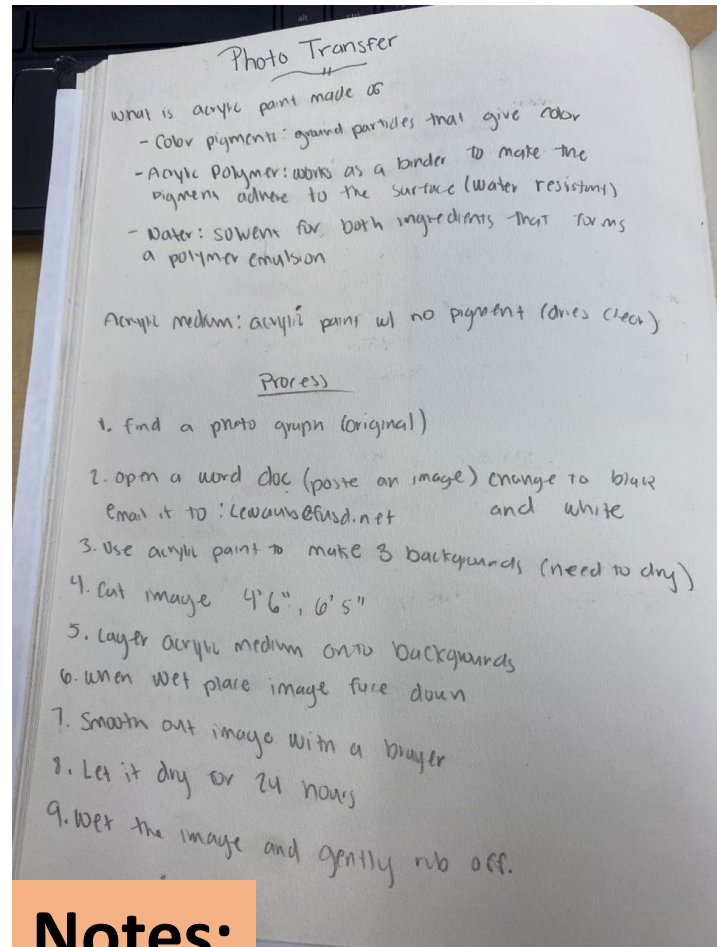 Photo Transfer
What is acrylic paint made of
- Color pigments: ground particles that give color
- Acrylic Polymer: works as a binder to make the
pigment adhere to the surface (water resistant)
- Water: solvent for both ingredients that forms
a polymer emulsion
Acrylic medium: acrylic paint w/ no pigment (dries clear)
Process
1. find a photo graph (original)
2. open a word doc (paste an image) change to black
email it to : @fusd.net and white
3. Use acrylic paint to make 3 backgrounds (need to dry)
4. Cut image 4'6", 6'5"
5. Layer acrylic medium onto backgrounds
6. when wet place image face down
7. Smooth out image with a brayer
8. Let it dry for 24 hours
9. Wet the image and gently rub off.
Notes: